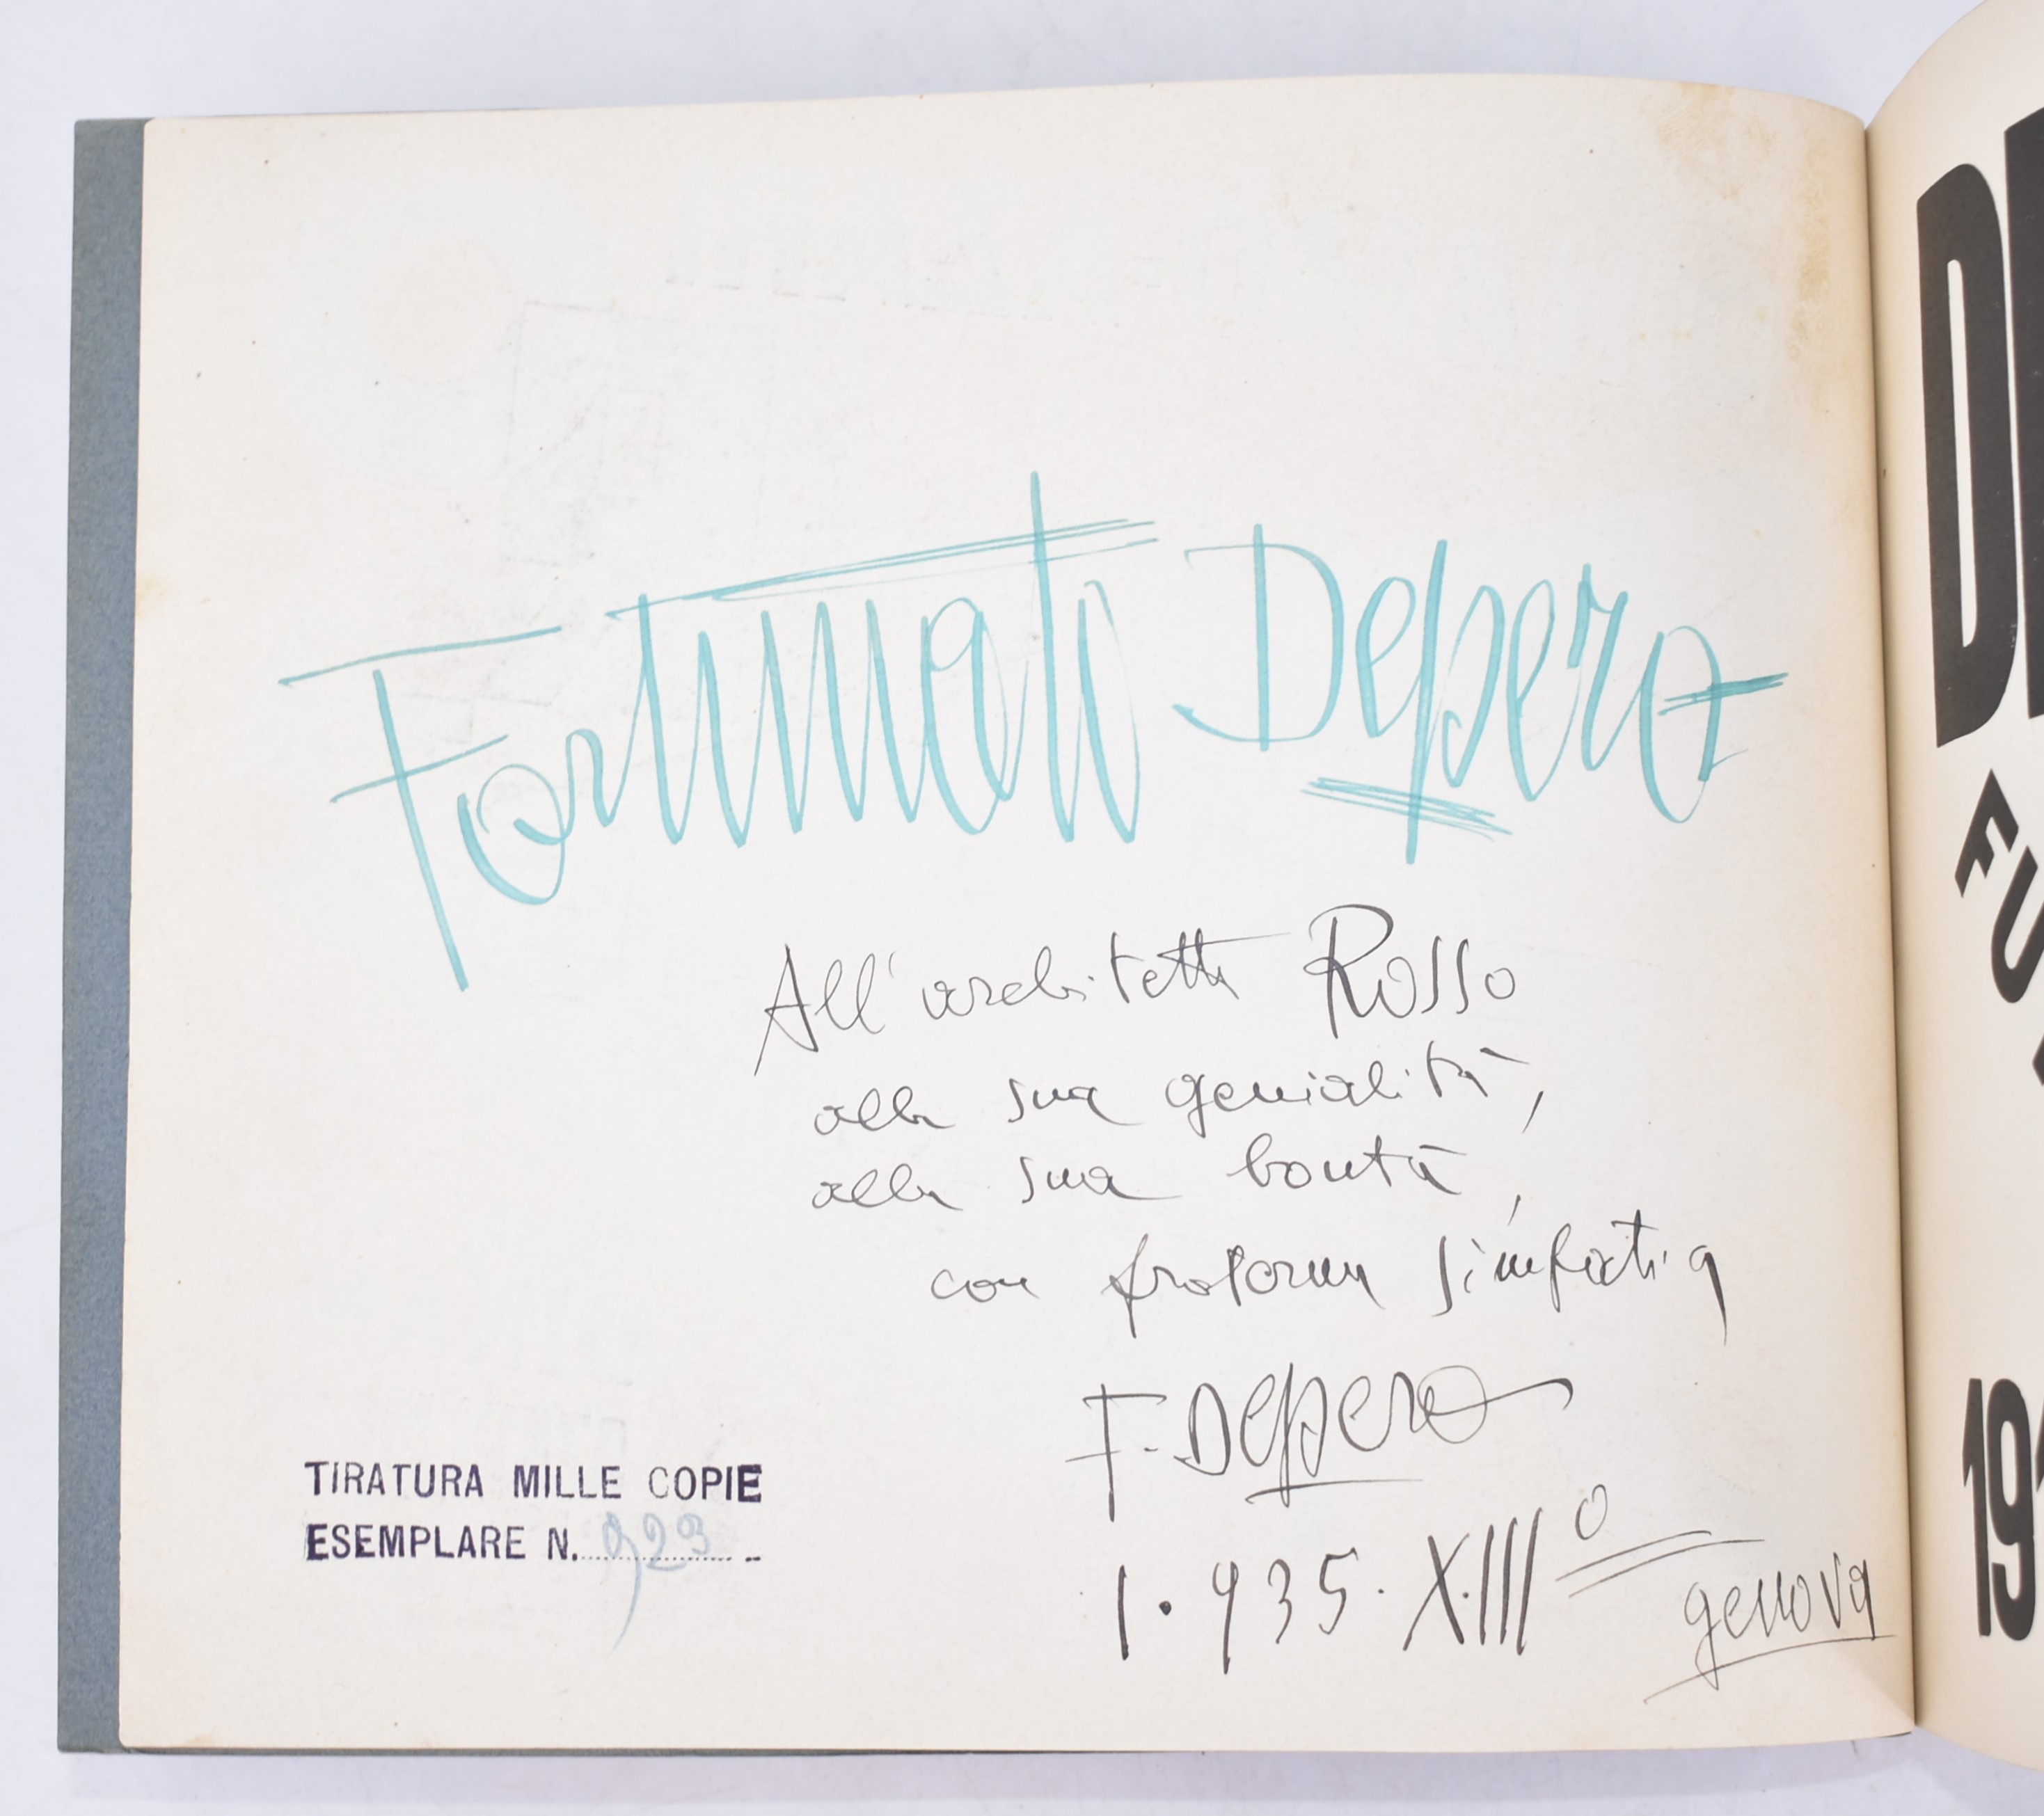 Fortunato Depero
All'architetto Rosso
alla sua genialità,
alla sua bontà,
con profonda simpatia
F. Depero
1.935. XIII°
genova
TIRATURA MILLE COPIE
ESEMPLARE N. 923
FU
19